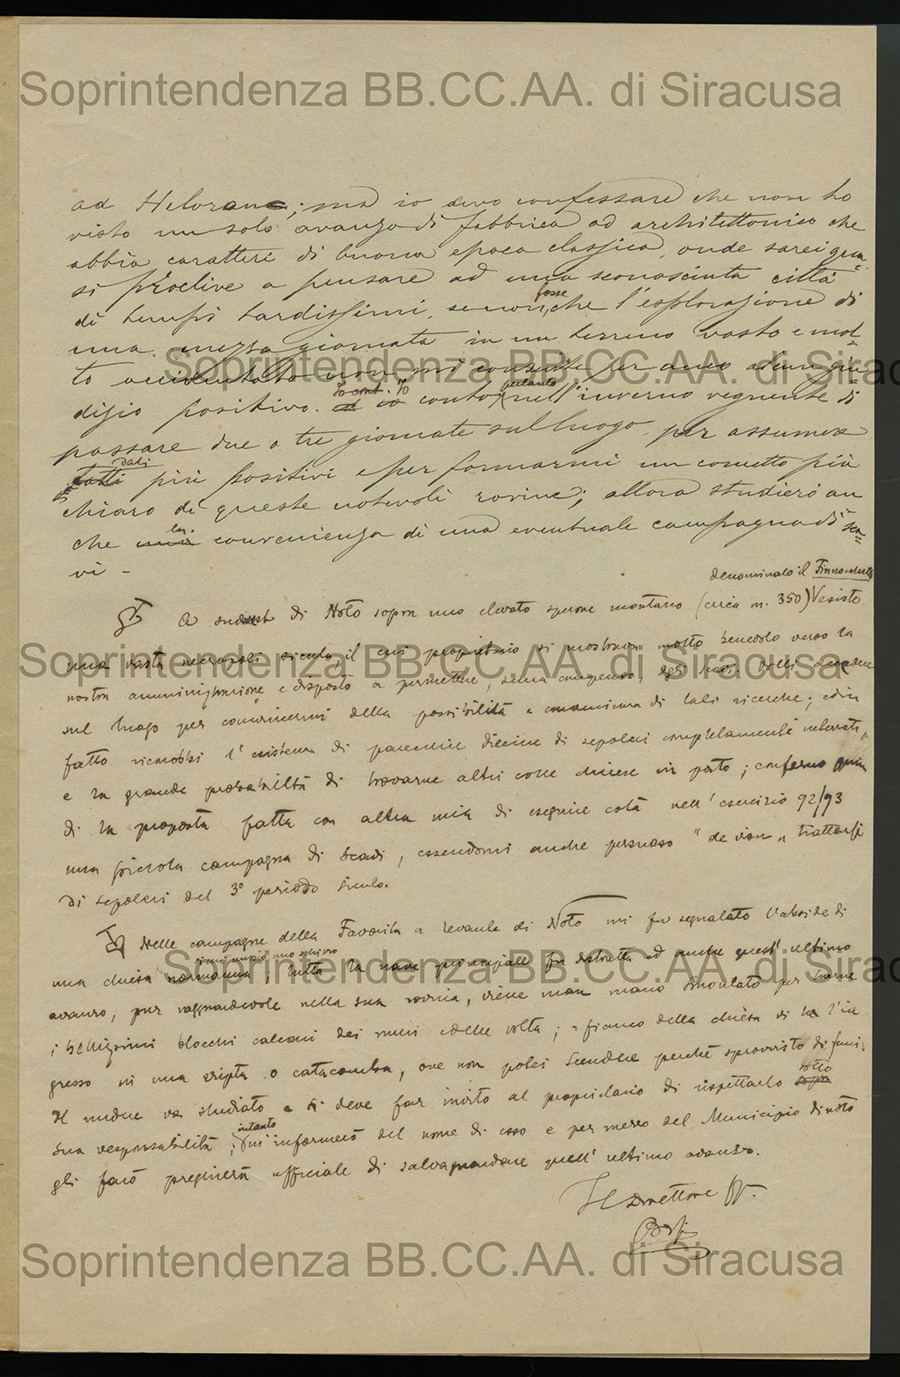 Soprintendenza BB.CC.AA. di Siracusa
ad Helorane; ma io devo confessare che non ho
visto un solo avanzo di fabbrica ad architettonico che
abbia caratteri di buona epoca classica, onde sarei qua-
si proclive a pensare ad una sconosciuta città
di tempi tardissimi, senonchè fosse l'esplorazione di
una mezza giornata in un terreno vasto e mol-
to accidentato non mi consente per anco alcun giu
Soprintendenza BB.CC.AA. di Siracusa
dizio positivo. Io conto pertanto nell'inverno vegnente di
passare due o tre giornate sul luogo per assumere
dati più positivi e per formarmi un concetto più
chiaro di queste notevoli rovine; allora studierò an
che la convenienza di una eventuale campagna di sca=
vi -
denominato il Finnocchito
A sudovest di Noto sopra uno elevato sperone montano (circa m. 350) V'esiste
una vasta necropoli sicula, il cui proprietario si mostrava molto benevolo verso la
Soprintendenza BB.CC.AA. di Siracusa
nostra amministrazione e disposto a permettere, senza compenso, degli scavi. Volli accedere
sul luogo per convincermi della possibilità e convenienza di tali ricerche; ed in
fatto riconobbi l'esistenza di parecchie diecine di sepolcri completamente interrati,
e la grande probabilità di trovarne altri colle chiese in posto; confermo quin
di la proposta fatta con altra mia di eseguire colà nell'esercizio 92/93
una piccola campagna di scavi, essendomi anche persuaso "de visu" trattarsi
di sepolcri del 3° periodo siculo.
Nelle campagne della Favorita a levante di Noto mi fu segnalato l'abside di
una chiesa normanna, tutta la nave principale fu distrutta ed anche quest'ultimo
Soprintendenza BB.CC.AA. di Siracusa
avanzo, pur ragguardevole nella sua rovina, viene man mano smontato per trarne
i bellissimi blocchi calcari dei muri e delle volta; a fianco della chiesa vi ha l'in
gresso in una cripta o catacomba, ove non potei scendere perchè sprovvisto di funi.
Il rudere va studiato e si deve far invito al proprietario di rispettarlo sotto
sua responsabilità; intanto m'informerò del nome di esso e per mezzo del Municipio di Noto
gli farò preghiera officiale di salvaguardare quell'ultimo avanzo.
Il Direttore ff.
Orsi
Soprintendenza BB.CC.AA. di Siracusa